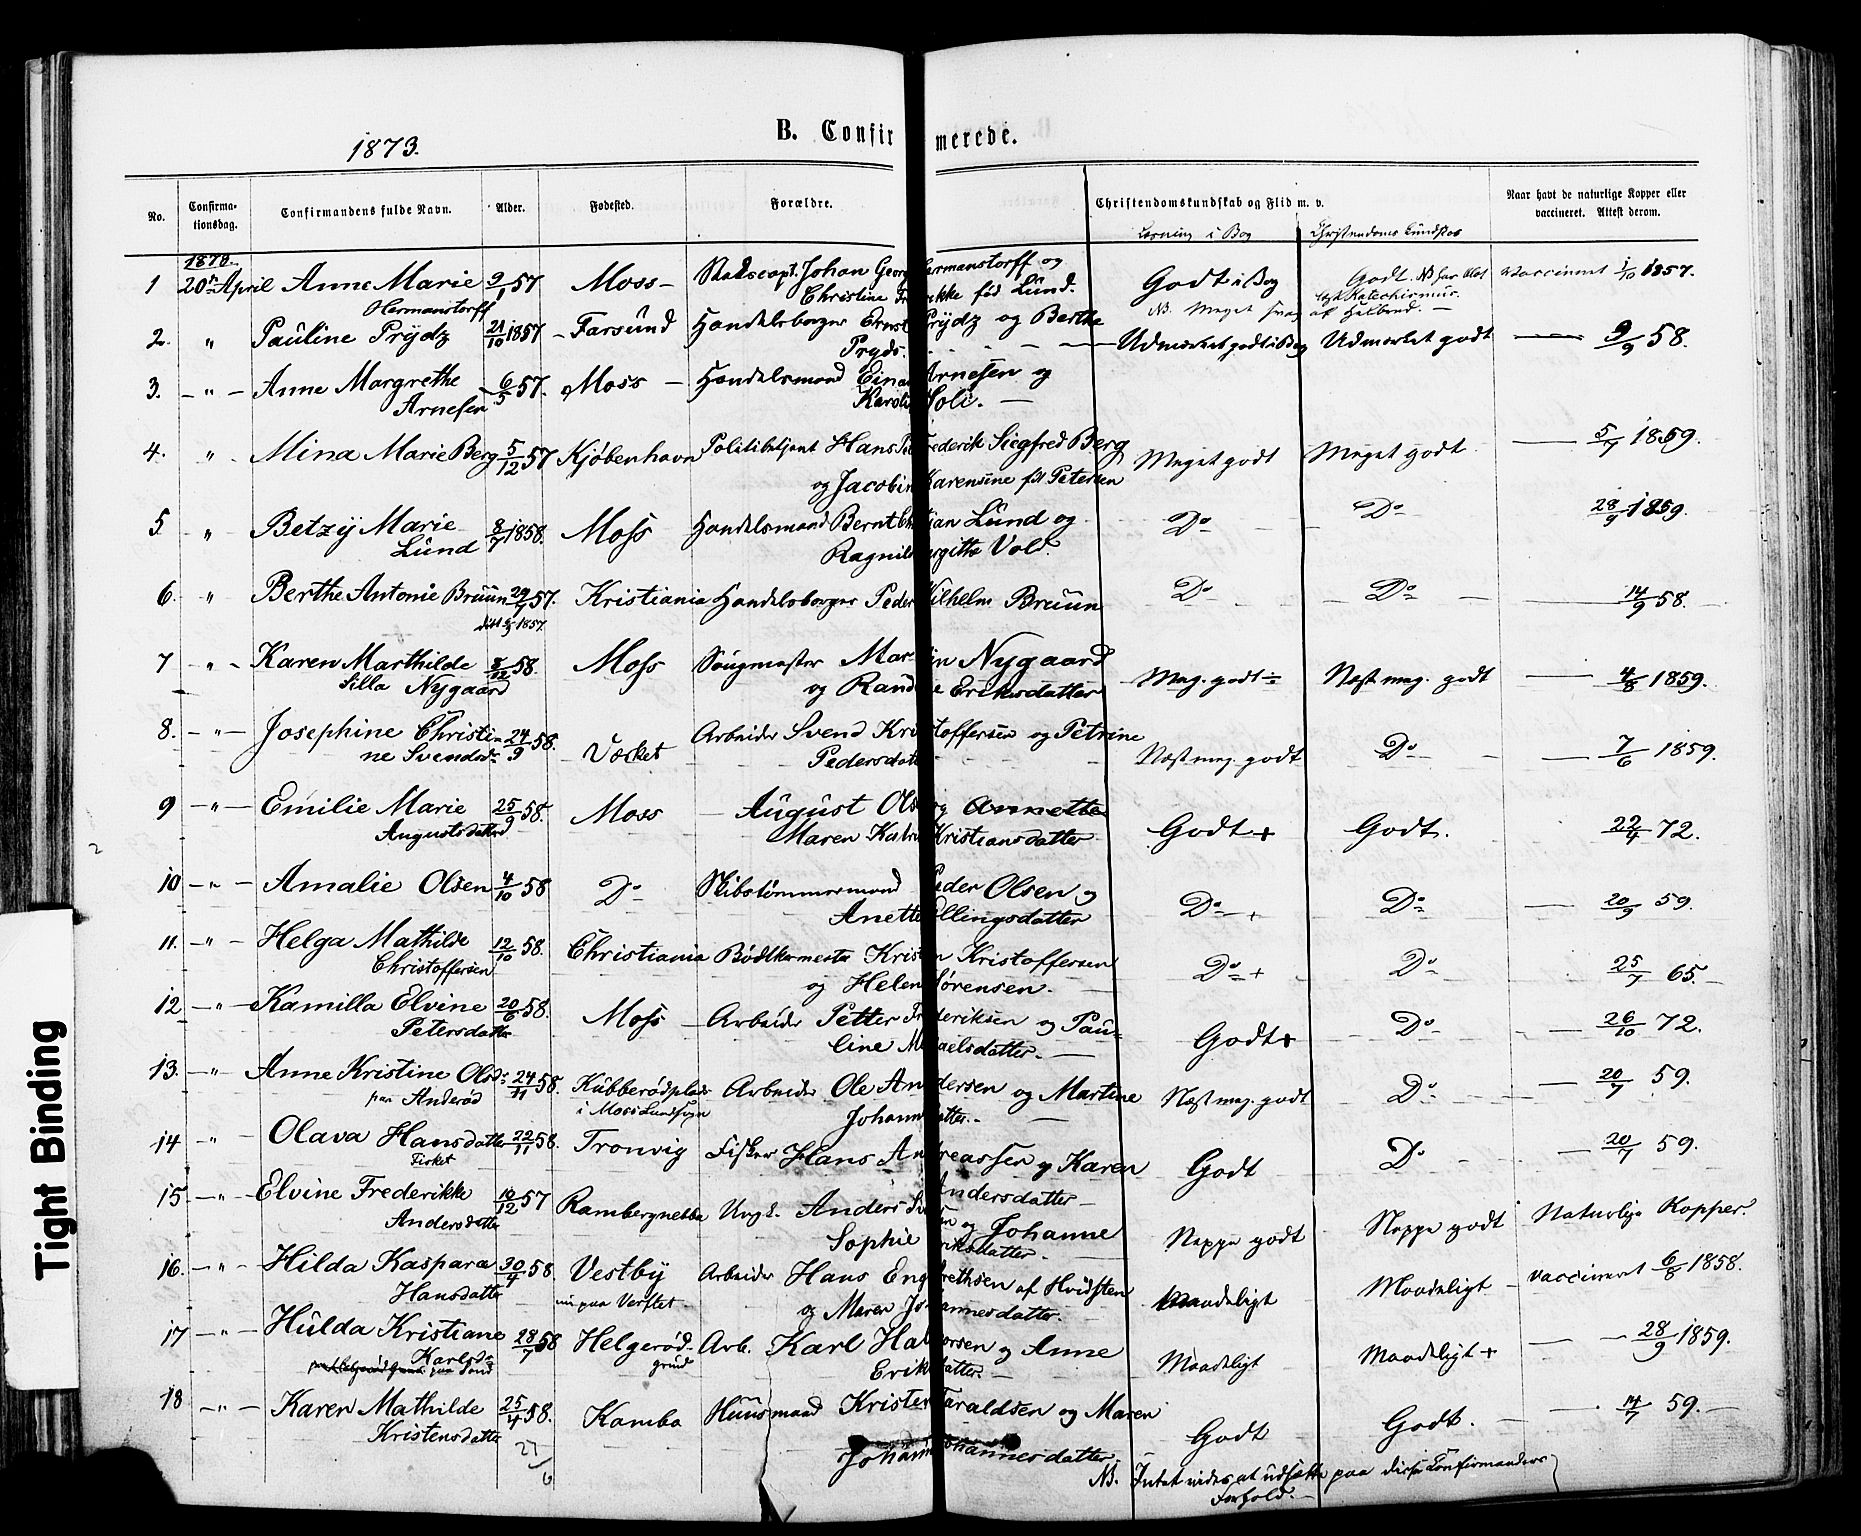 1873.
B. Confirmerede.
No.
Confirma-
tionsdag.
Confirmandens fulde Navn.
Alder.
Fødested.
Forældre.
Christendomskundskab og Flid m. v.
Naar havt de naturlige Kopper eller
vaccineret. Attest derom.
Læsning i Bog
Christendoms Kundskab
1873.
1 20de April Anne Marie 9/1 57 Moss – Skibscapt. Johan Georg Hermanstorff og Godt i Bog Godt. vaccineret 1/10 1857.
Hermanstorff Christine Frederikke fød Lund. NB. Meget svag
2. " Pauline Prydz 21/10 1857 – Farsund Handelsborger Ernst Prydz og Berthe Udmærket godt i Bog Udmærket godt — 9/9 58.
Pryds.
3. – " – Anne Margrethe 6/5 57. Moss – Handelsmand Einar Arnesen og
Arnesen Karoline Soli. —
4. " Mina Marie Berg 5/12 57 Kjøbenhavn Politibetjent Hans Frederik Siegfred Berg Meget godt Meget godt — 5/7 1859.
og Jacobine Karensine fød Petersen
5. " Betzy Marie 8/7 1858. Moss Handelsmand Bernt Christian Lund og Do Do 28/9 1859.
Lund Ragnild Birgitte Vold.
6. " Berthe Antonie Bruun 29/4 57. Kristiania Handelsborger Peder Vilhelm Bruun Do Do 14/9 58.
7 – " – Karen Marthilde 8/12 58. Moss Saugmester Martin Nygaard Meg. godt ÷ Næst meg. godt — 4/8 1859.
Silla Nygaard og Randine Eriksdatter
8. – " – Josephine Christi- 24/9 58. Værket Arbeider Svend Kristoffersen og Petrine Næst meg. godt Do — 7/6 1859.
ne Svendsd. Pedersdatter
9 – " – Emilie Marie 25/9 58. Moss – August Olsen og Annette Godt + Godt. 22/4 72.
Augustsdatter Maren Katrine Kristiansdatter
10 – " – Amalie Olsen 4/10 58 Do Skibstømmermand Peder Olsen og Do + Do — 20/9 59.
Anette Ellingsdatter
11. – " – Helga Mathilde 12/10 58. Christiania Bødkermester Kristen Kristoffersen Do + Do 25/7 65.
Christoffersen og Helene Sørensen.
12 – " – Kamilla Elvine 20/6 58. Moss – Arbeider Petter Frederiksen og Pau- Godt + Do — 26/10 72.
Petersdatter line Mikaelsdatter. —
13. – " Anne Kristine Olsdr 24/11 58. Kubberødplads Arbeider Ole Andersen og Martine Næst meg. godt Do — 20/7 59.
paa Anderød i Moss Landsogn Johannesdatter.
14 – " – Olava Hansdatter 22/11 58. Tronvig Fisker Hans Andreassen og Karen Godt Do — 20/7 59.
Andersdatter
15 – " – Elvine Frederikke 10/12 57 Rambergnebba Ungk. Anders Svendsen og Johanne Neppe godt Neppe godt Naturlige Kopper.
Andersdatter Sophie Eriksdatter
16. – " – Hilda Kaspara 30/4 58 Vestby Arbeider Hans Engebrethsen af Hvidsten Maadeligt Maadeligt – vaccineret 6/8 1858.
Hansdatter nu paa Verftet og Maren Johannesdatter.
17 – " – Hulda Kristiane 28/7 58 Helgerød- Arb. Karl Halvorsen og Anne Maadeligt Maadeligt + — 28/9 1859.
Karlsd. grud Eriksdatter.
18 – " – Karen Mathilde 25/4 58. Kambo Huusmand Kristen Taraldsen og Maren Godt Godt. — 14/7 59.
Kristensdatter Johannesdatter.
27/6
NB. Intet videre at udsætte paa disse Confirmanders
Forhold. –
Tight Binding